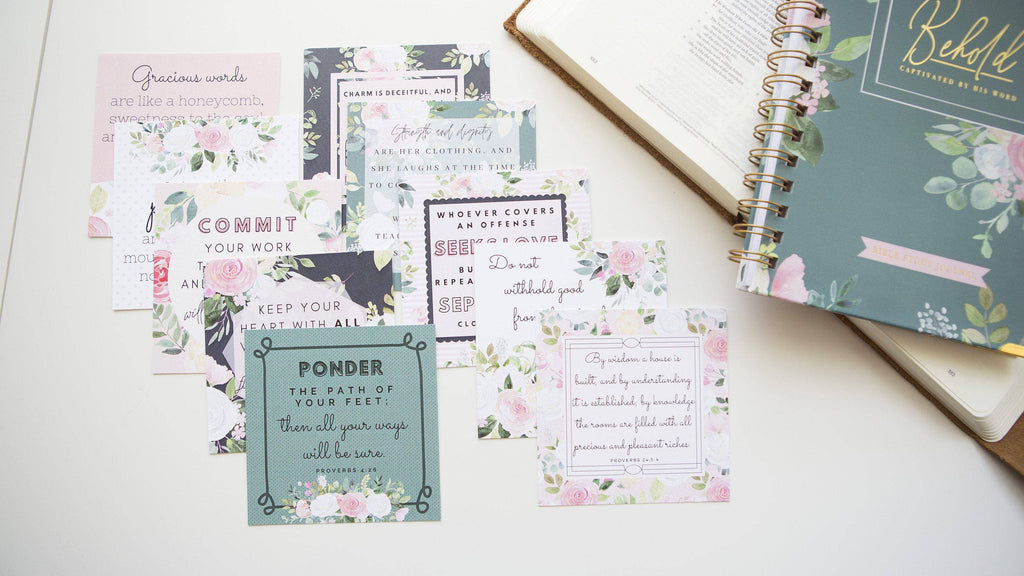 Gracious words
are like a honeycomb,
sweetness to the soul
CHARM IS DECEITFUL, AND
Strength and dignity
ARE HER CLOTHING, AND
SHE LAUGHS AT THE TIME
TO
COMMIT
YOUR WORK
WHOEVER COVERS
AN OFFENSE
SEEKS LOVE
Do not
withhold good
KEEP YOUR
HEART WITH ALL
PONDER
THE PATH OF
YOUR FEET;
then all your ways
will be sure.
PROVERBS 4:26
By wisdom a house is
built, and by understanding
it is established; by knowledge
the rooms are filled with all
precious and pleasant riches.
PROVERBS 24:3-4
Behold
CAPTIVATED BY HIS WORD
BIBLE STUDY JOURNAL